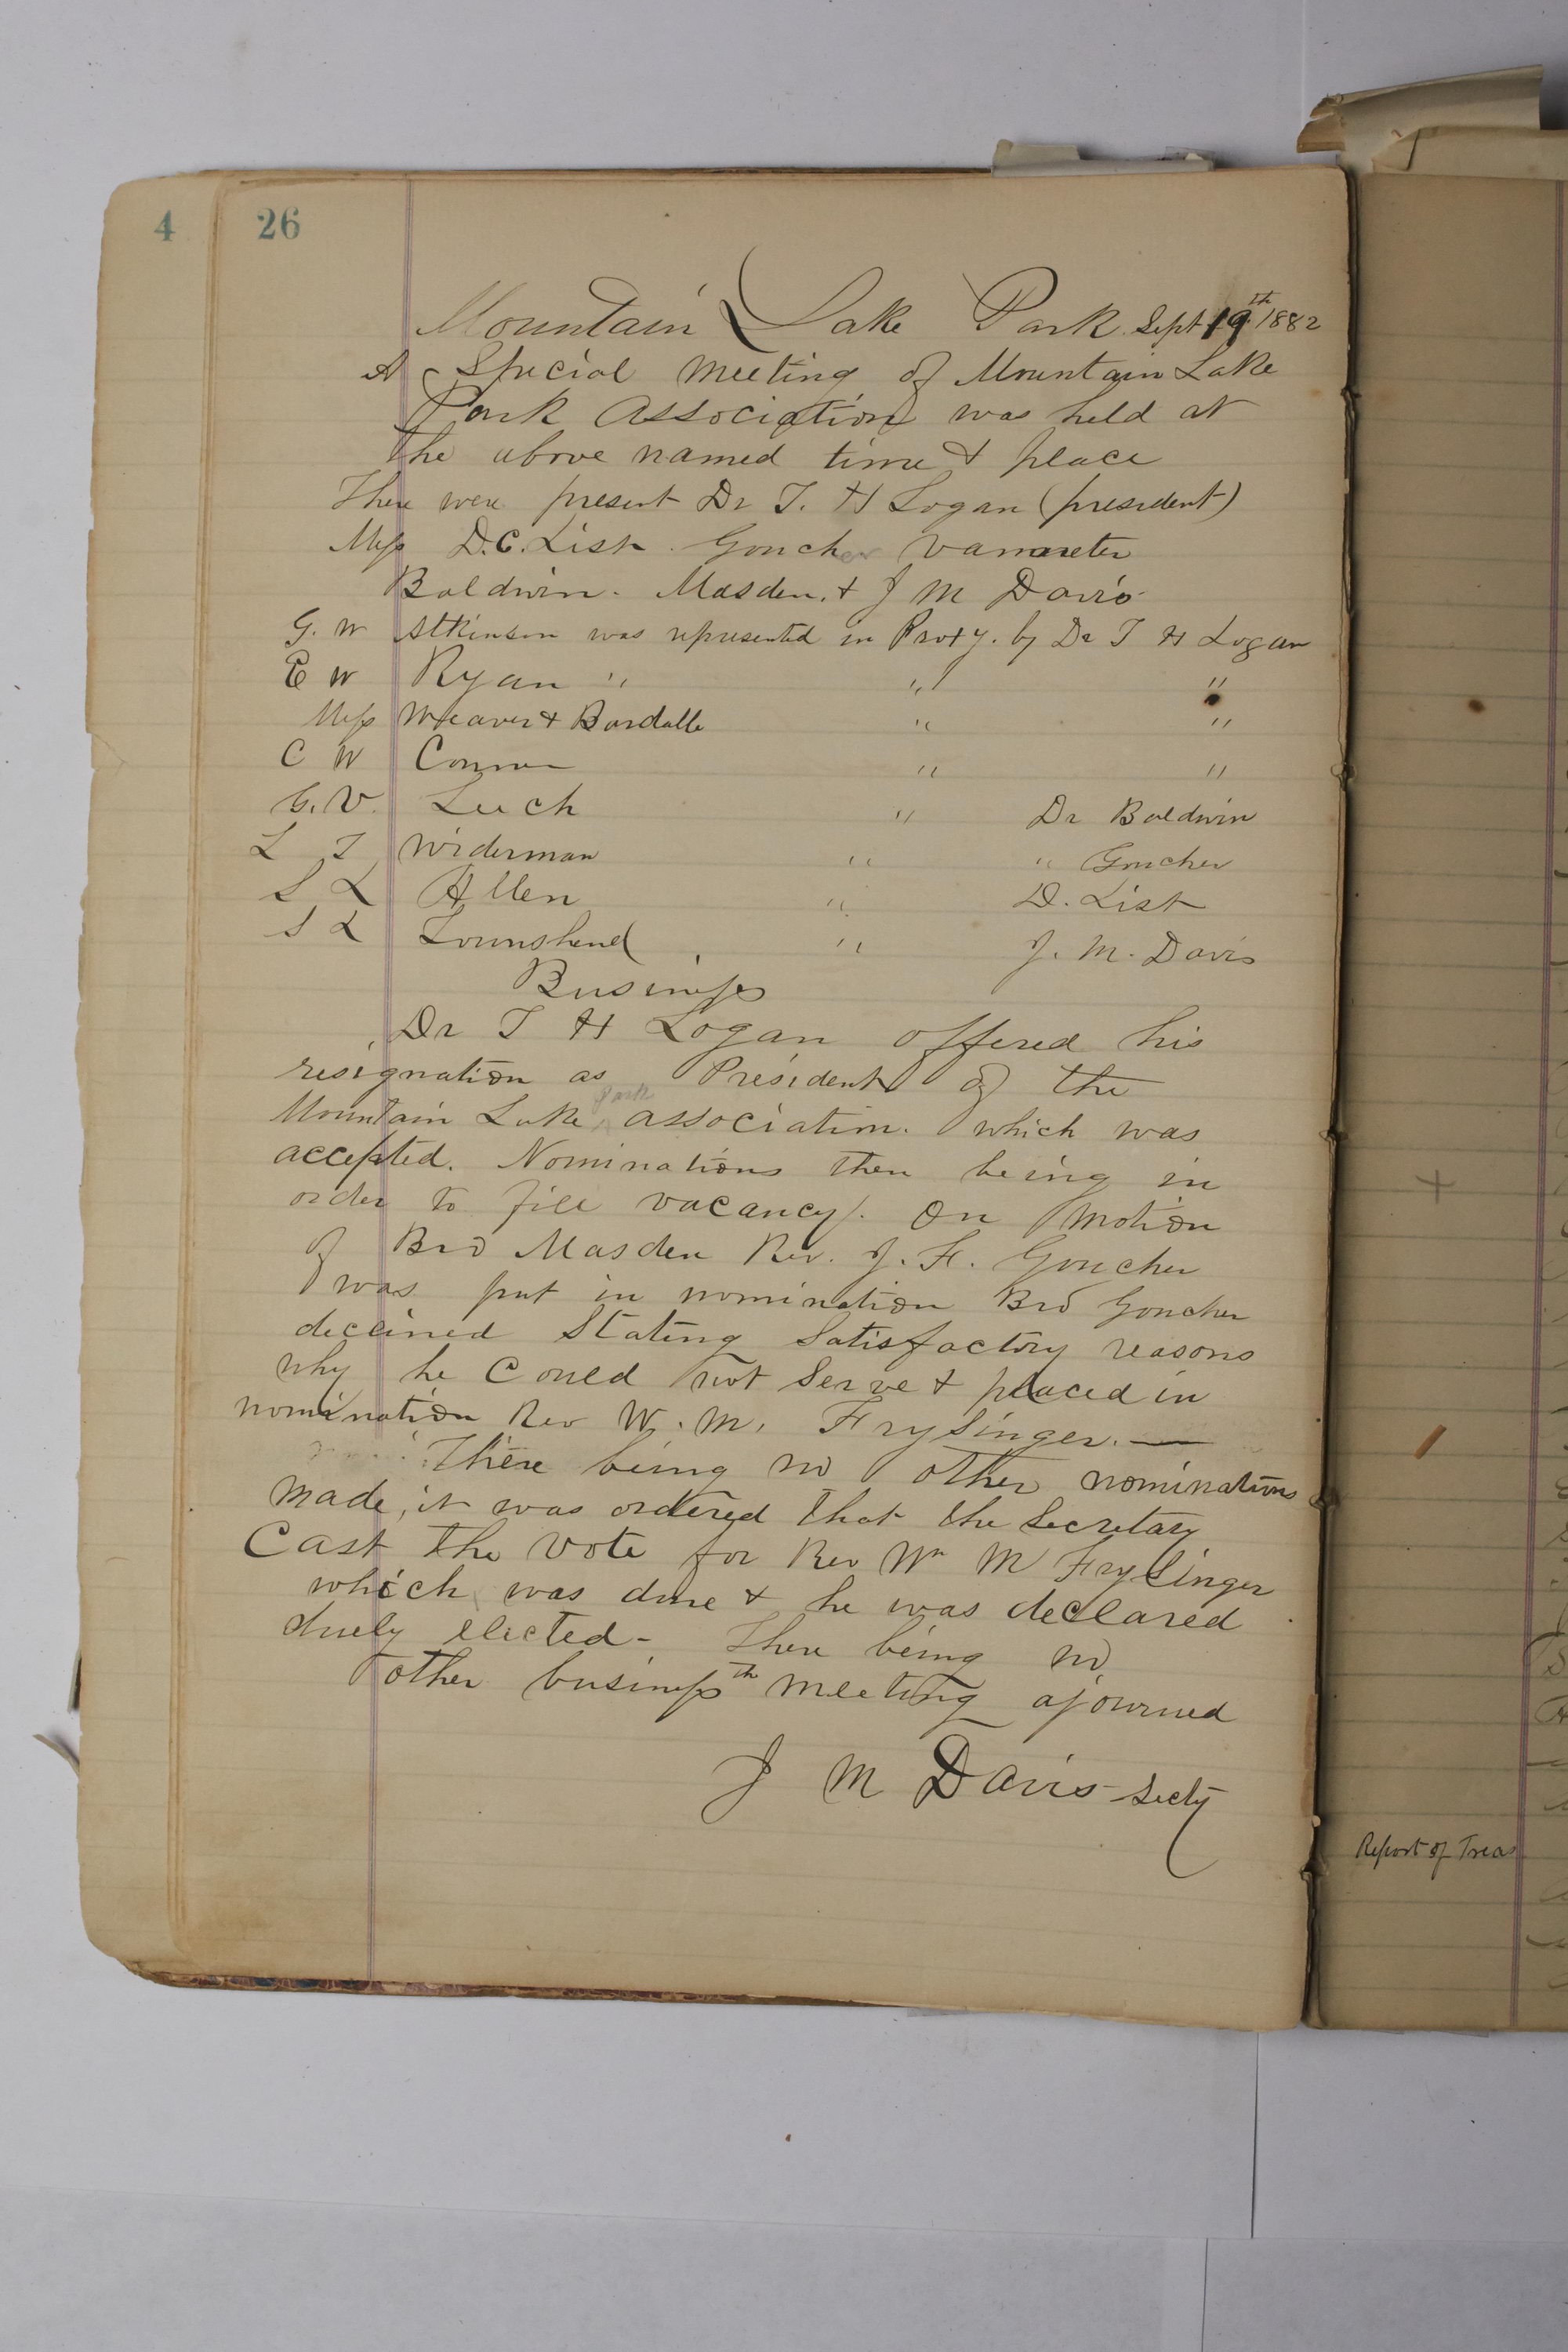 4 26
Mountain Lake Park Sept 19th 1882
A Special meeting of Mountain Lake
Park Association was held at
the above named time & place
There were present Dr T. H Logan (president)
Mess D.C. List. Goucher Vanmeter
Baldwin. Masden. & J M Davis
G. W Atkinson was represented in Proxy. by Dr T H Logan
E W Ryan " " "
Mess Weaver & Bardalle " "
C W Conner " "
G. V. Leech " Dr Baldwin
L T Widerman " " Goucher
S L Allen " D. List
S L Townshend " J. M. Davis
Business
Dr T H Logan offered his
resignation as President of the
Mountain Lake Park association. which was
accepted. Nominations then being in
order to fill vacancy. On motion
of Bro Masden Rev. J. F. Goucher
was put in nomination Bro Goucher
declined Stating Satisfactory reasons
why he Could not Serve & placed in
nomination Rev W. M. Frysinger. —
There being no other nominations
made, it was ordered that the Secretary
Cast the vote for Rev Wm M Frysinger
which was done & he was declared
duely elected - There being no
other business th meeting ajourned
J M Davis - Secty
Report of Treas